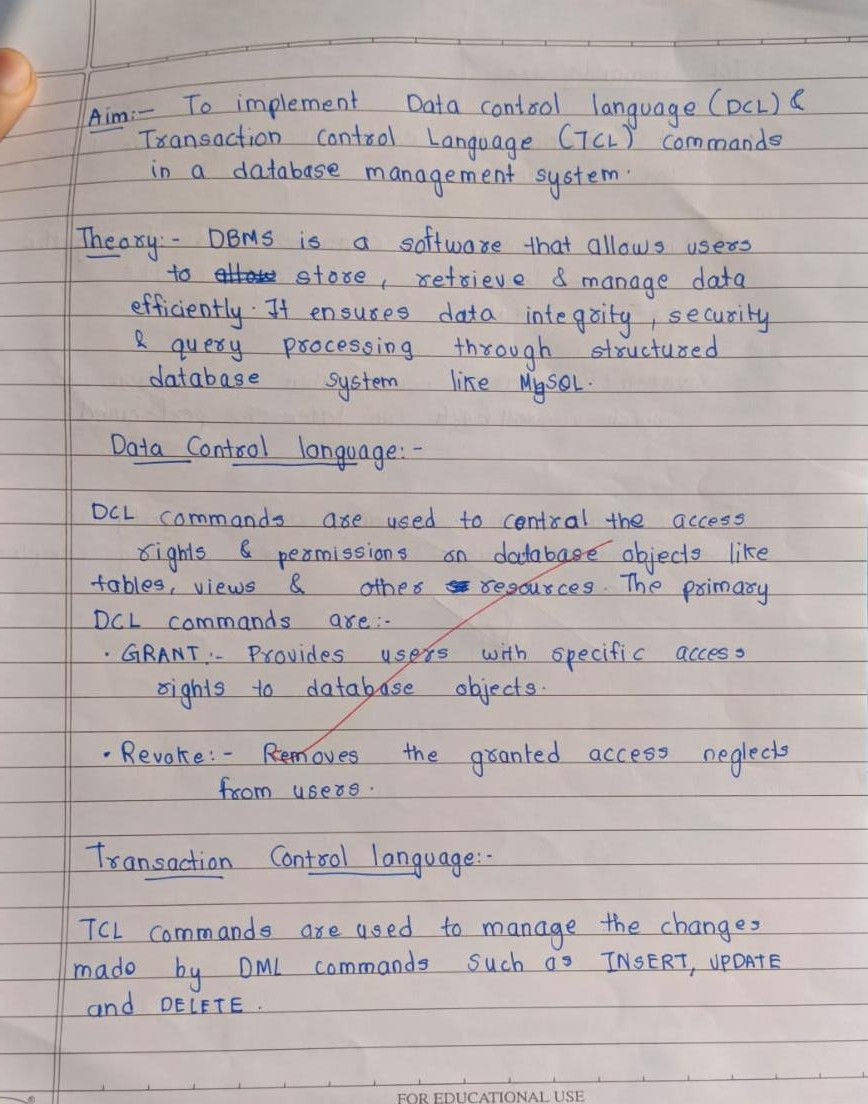 Aim:- To implement Data control language (DCL) &
Transaction control Language (TCL) commands
in a database management system.
Theory:- DBMS is a software that allows users
to allow store, retrieve & manage data
efficiently. It ensures data integrity, security
& query processing through structured
database system like MySQL.
Data Control language:-
DCL commands are used to central the access
rights & permissions on database objects like
tables, views & other resources. The primary
DCL commands are:-
• GRANT:- Provides users with specific access
rights to database objects.
• Revoke:- Removes the granted access neglects
from users.
Transaction Control language:-
TCL commands are used to manage the changes
made by DML commands such as INSERT, UPDATE
and DELETE.
FOR EDUCATIONAL USE